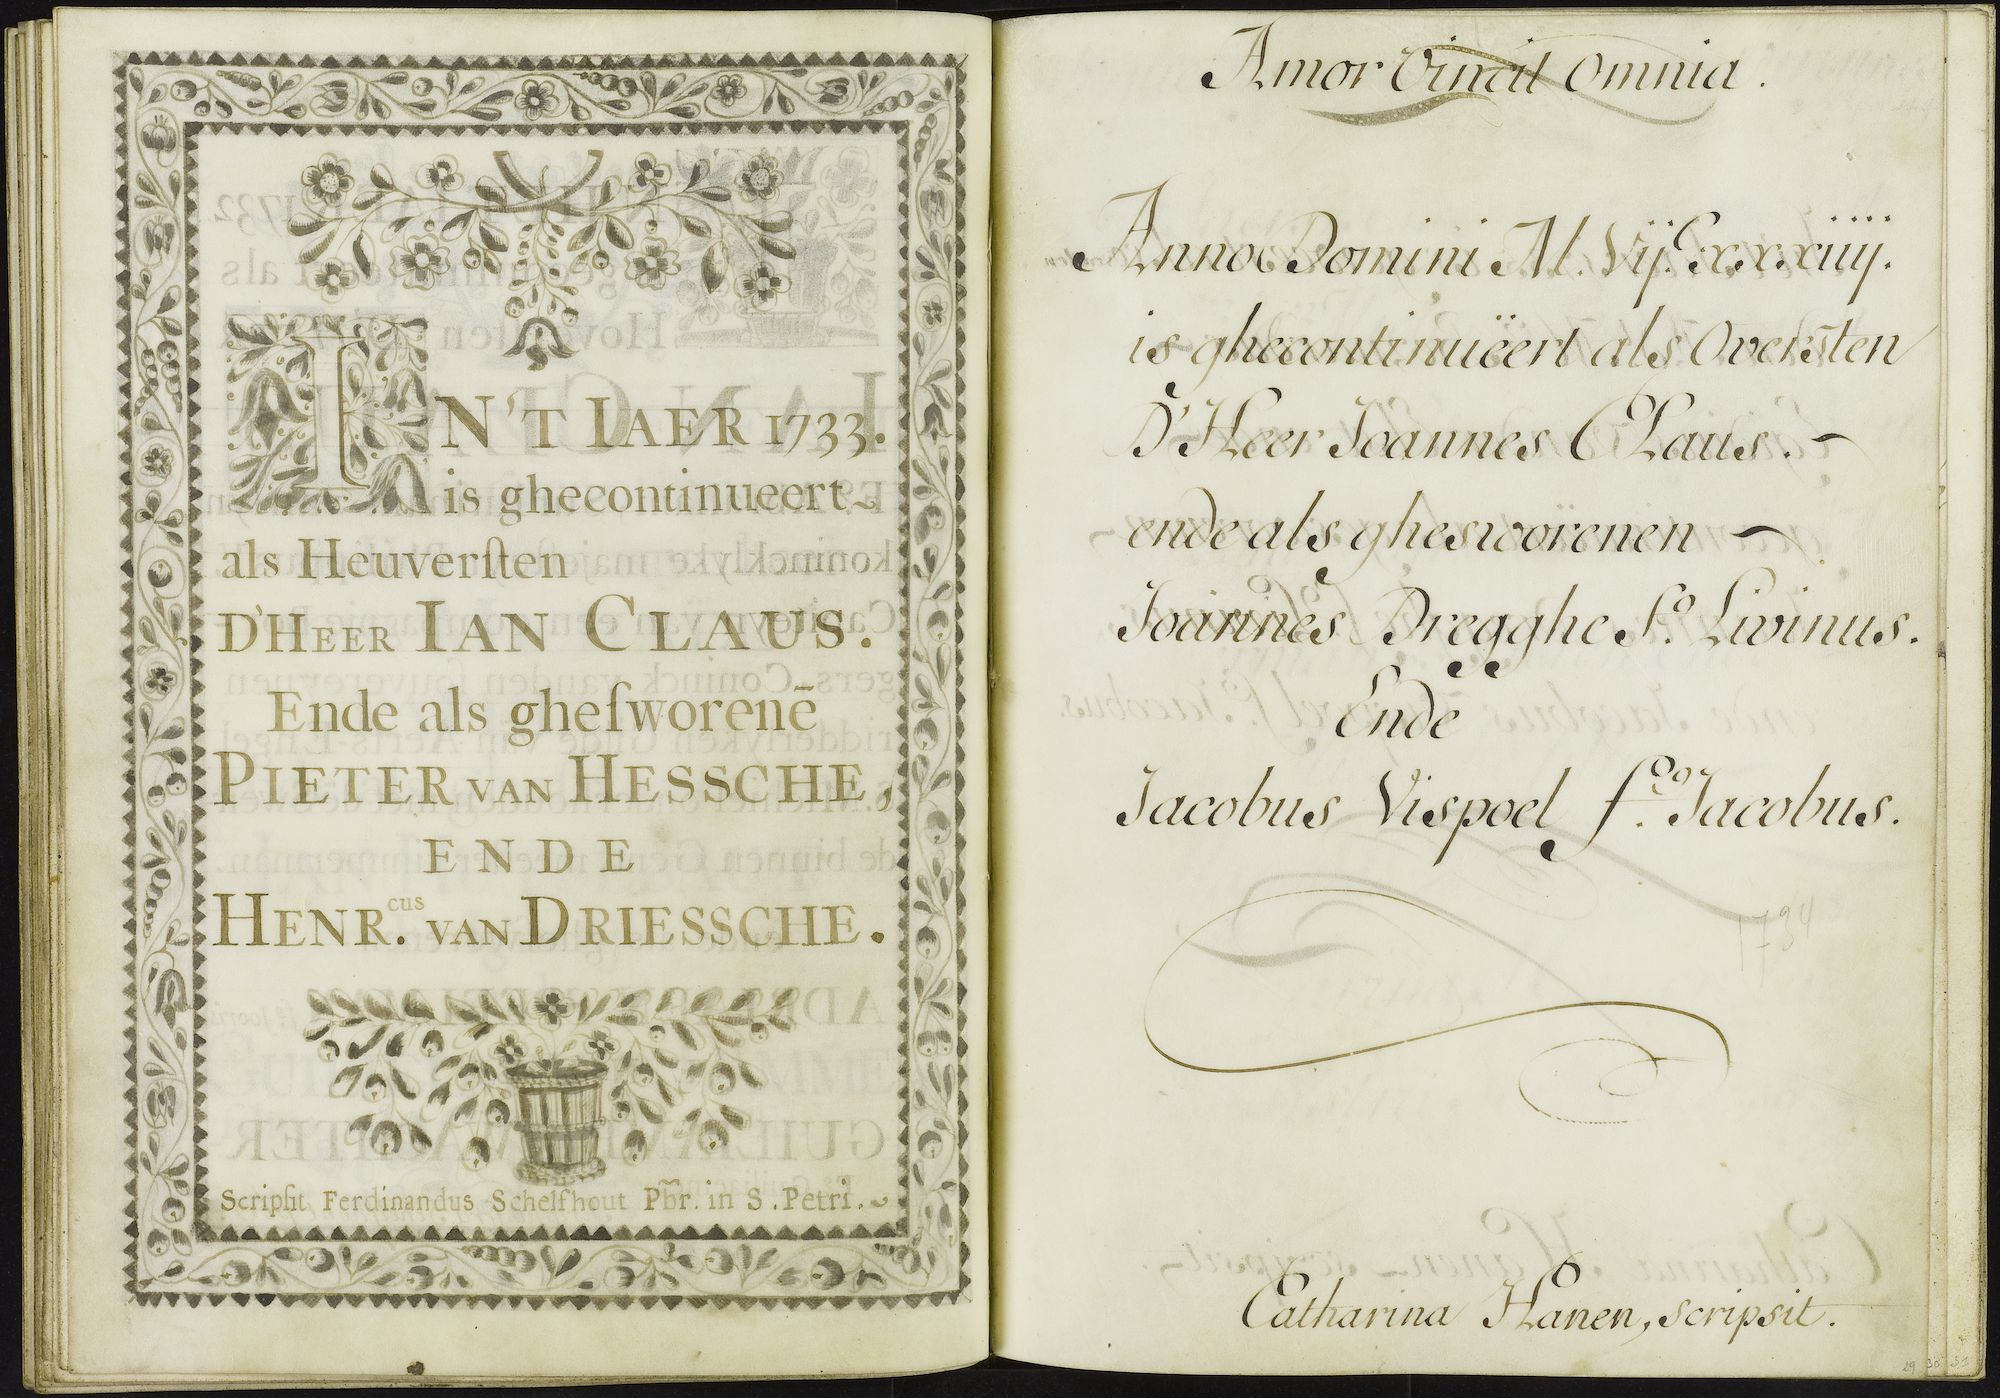 IN'T IAER 1733.
is ghecontinueert~
als Heuverſten
D'HEER IAN CLAUS.
Ende als gheſworenē
PIETER VAN HESSCHE,
ENDE
HENR.cus VAN DRIESSCHE.
Scripſit Ferdinandus Schelfhout Pb̃r. in S. Petri.
Amor Vincit Omnia.
Anno Domini M. Vij. Cxxxiiij.
is ghecontinuëert als Oversten
D'Heer Joannes CLaus. ~
ende als ghesworenen ~
Joannes Dregghe fº. Livinus.
Ende
Jacobus Vispoel fº. Jacobus.
1734
Catharina Hanen, scripsit.
29 30 31